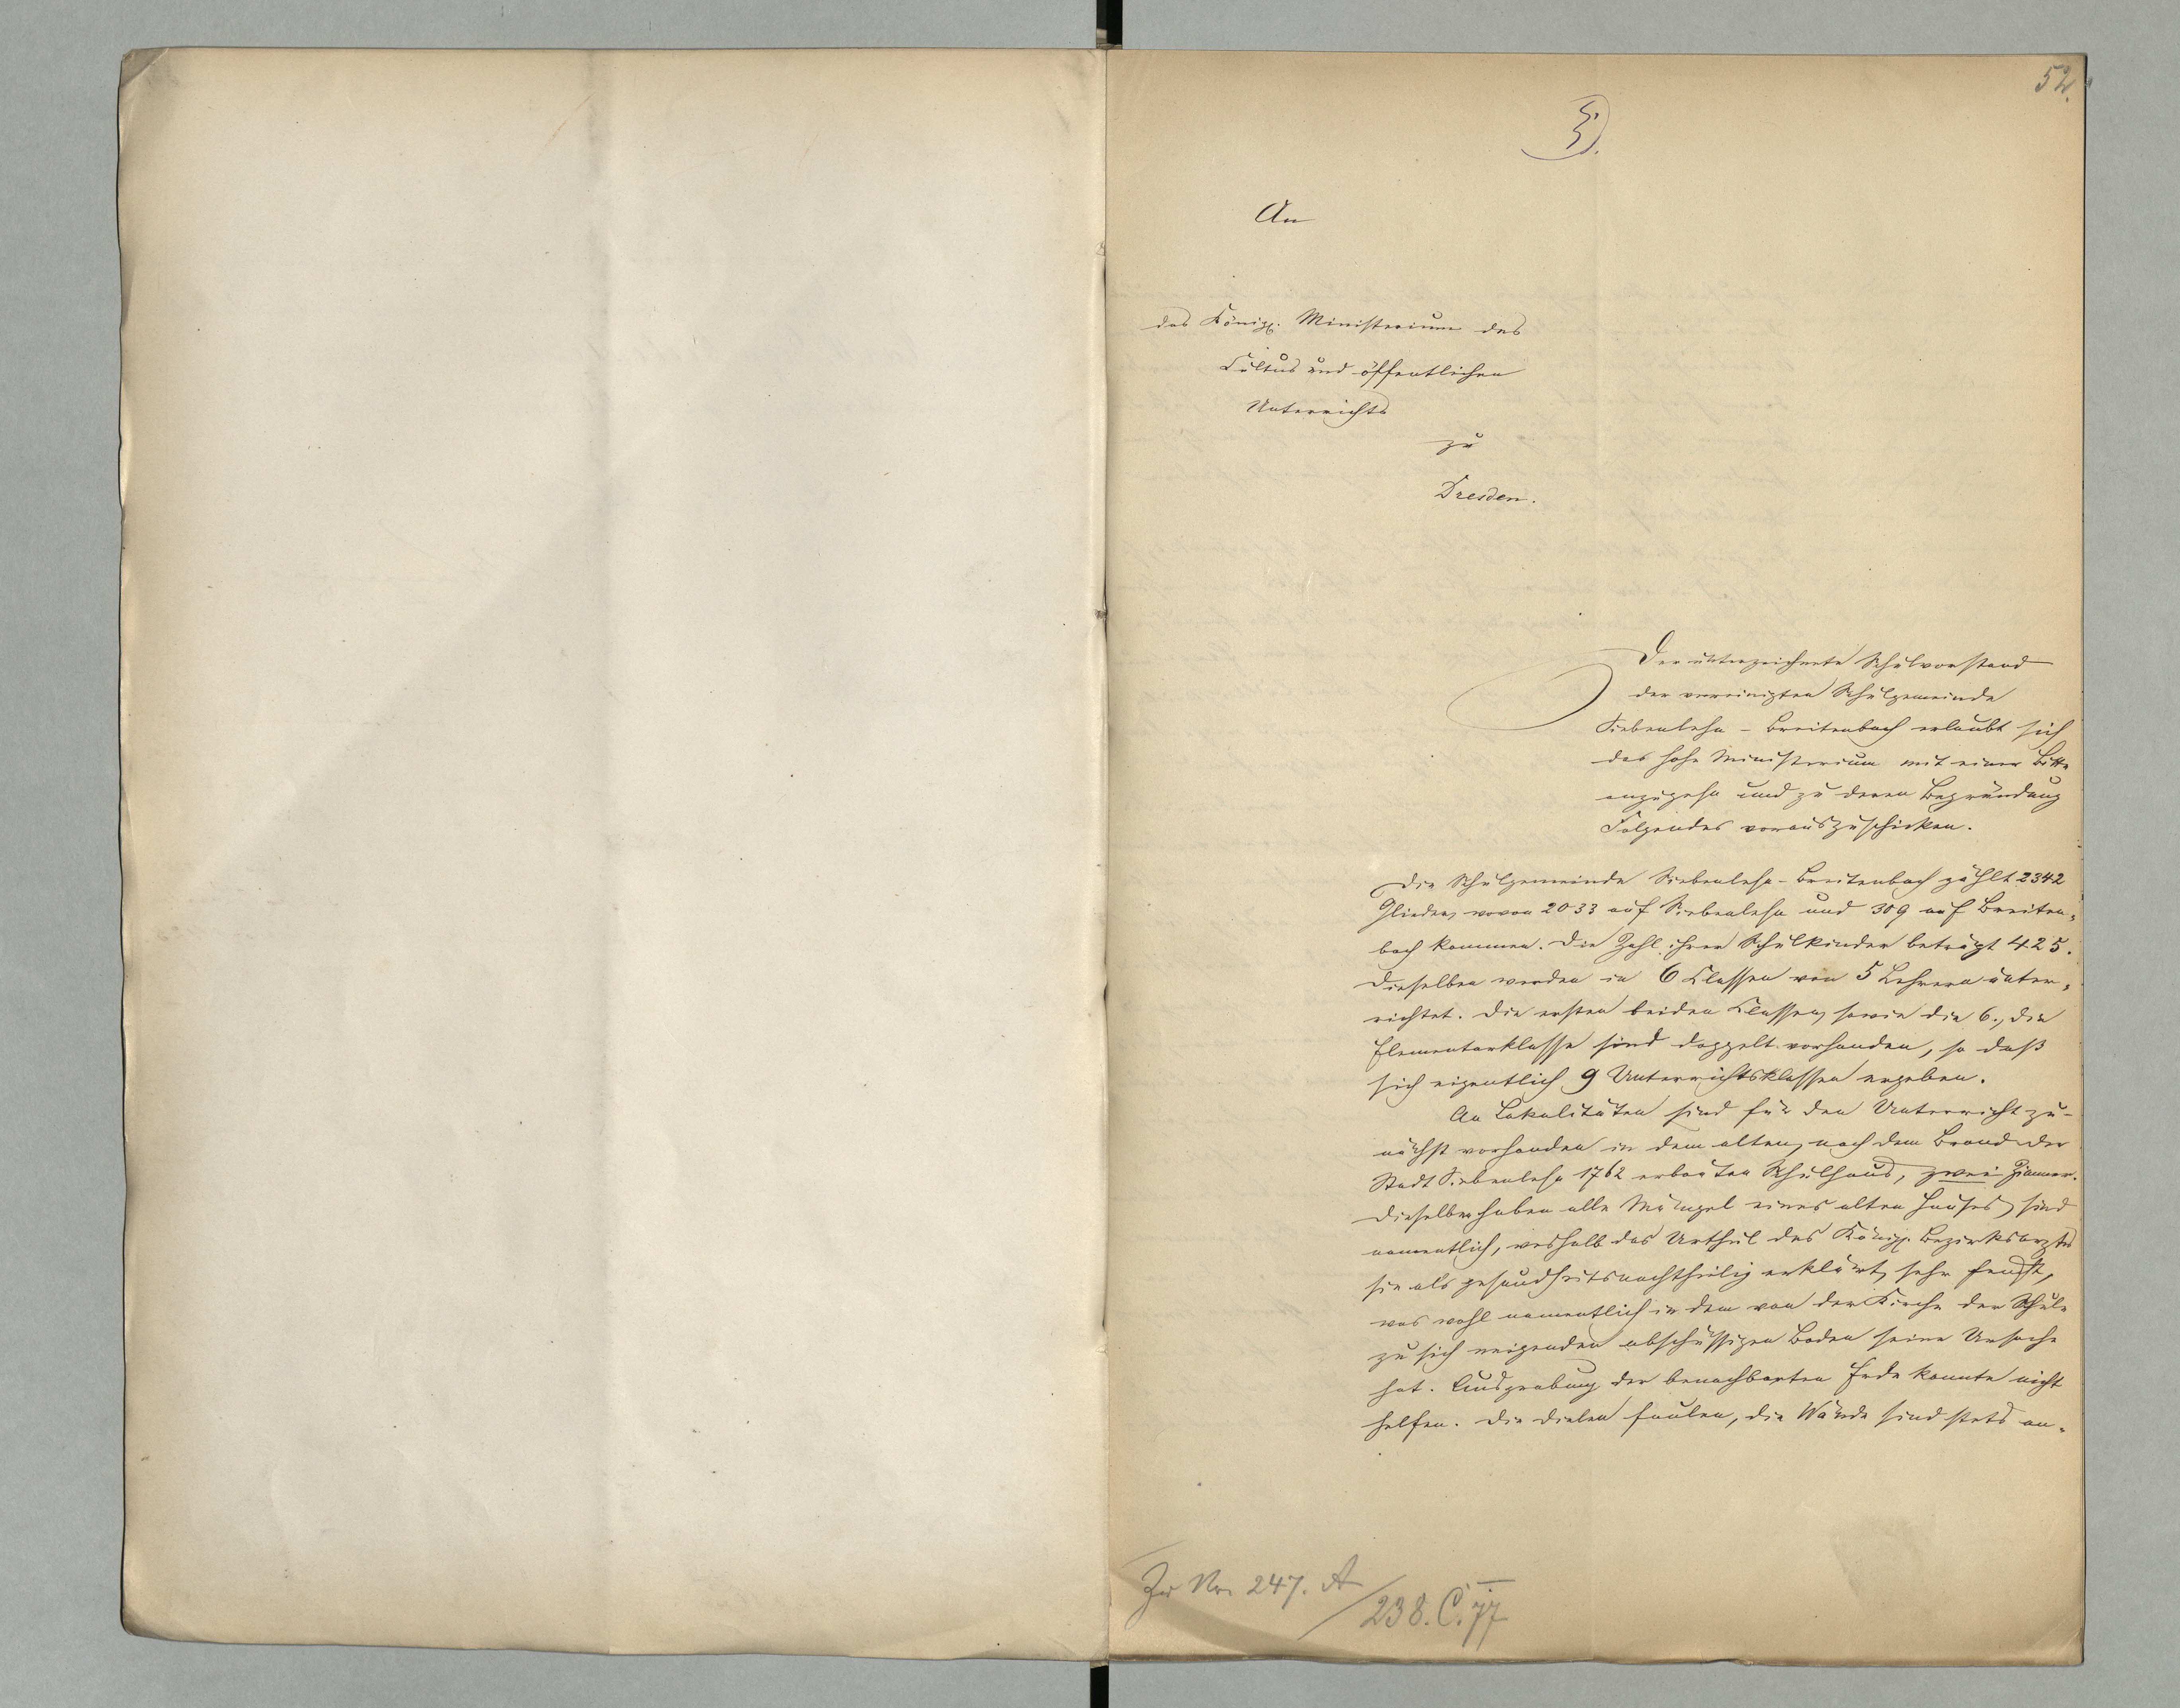 52.
An
das Königl. Ministerium des
Cultus und öffentlichen
Unterrichts
zu
Dresden.
Der unterzeichnete Schulvorstand
der vereinigten Schulgemeinde
Siebenlehn - Breitenbach erlaubt sich
das hohe Ministerium mit einer Bitte
anzugehn und zu deren Begründung
Folgendes vorauszuschicken.
Die Schulgemeinde Siebenlehn-Breitenbach zählt 2342
Glieder, wovon 2033 auf Siebenlehn und 309 auf Breiten-
bach kommen. Die Zahl ihrer Schulkinder beträgt 425.
Dieselben werden in 6 Classen von 5 Lehrern unter-
richtet. Die ersten beiden Classen, sowie die 6., die
Elementarklasse sind doppelt vorhanden, so daß
sich eigentlich 9 Unterrichtsklassen ergeben.
An Lokalitäten sind für den Unterricht zu-
nächst vorhanden in dem alten, nach dem Brand der
Stadt Siebenlehn 1762 erbauten Schulhaus, zwei Zimmer.
Dieselben haben alle Mängel eines alten Hauses, sind
namentlich, weshalb das Urtheil des Königl. Bezirksarztes
sie als gesundheitsnachtheilig erklärt, sehr feucht,
was wohl namentlich in dem von der Kirche der Schule
zu sich neigenden abschüssigen Boden seine Ursache
hat. Ausgrabung der benachbarten Erde konnte nicht
helfen. Die Dielen faulen, die Wände sind stets an-
Zu No. 247. A
238. C. 77